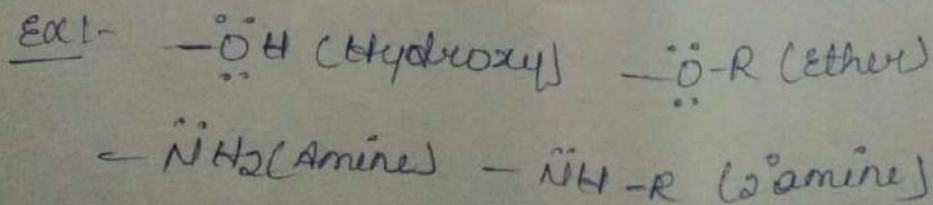 Ex1- -ÖH (Hydroxy) -Ö-R (Ether)
-N̈H2 (Amine) - N̈H-R (2° amine)